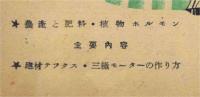 ★ 農産と肥料・植物ホルモン
主要内容
★ 建材テックス・三極モーターの作り方